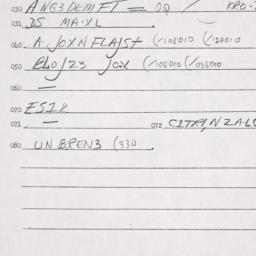 030 ANG3DEMFT = OP / KRO-
031 DS MA·XL
040 A JOXNFLAJST (/108010 (/128010
050 BLOJ23 JOX (/108010 (/038010
060 —
070 ESIK
071 — 072 CITRINZALO
080 UN BREN3 (330